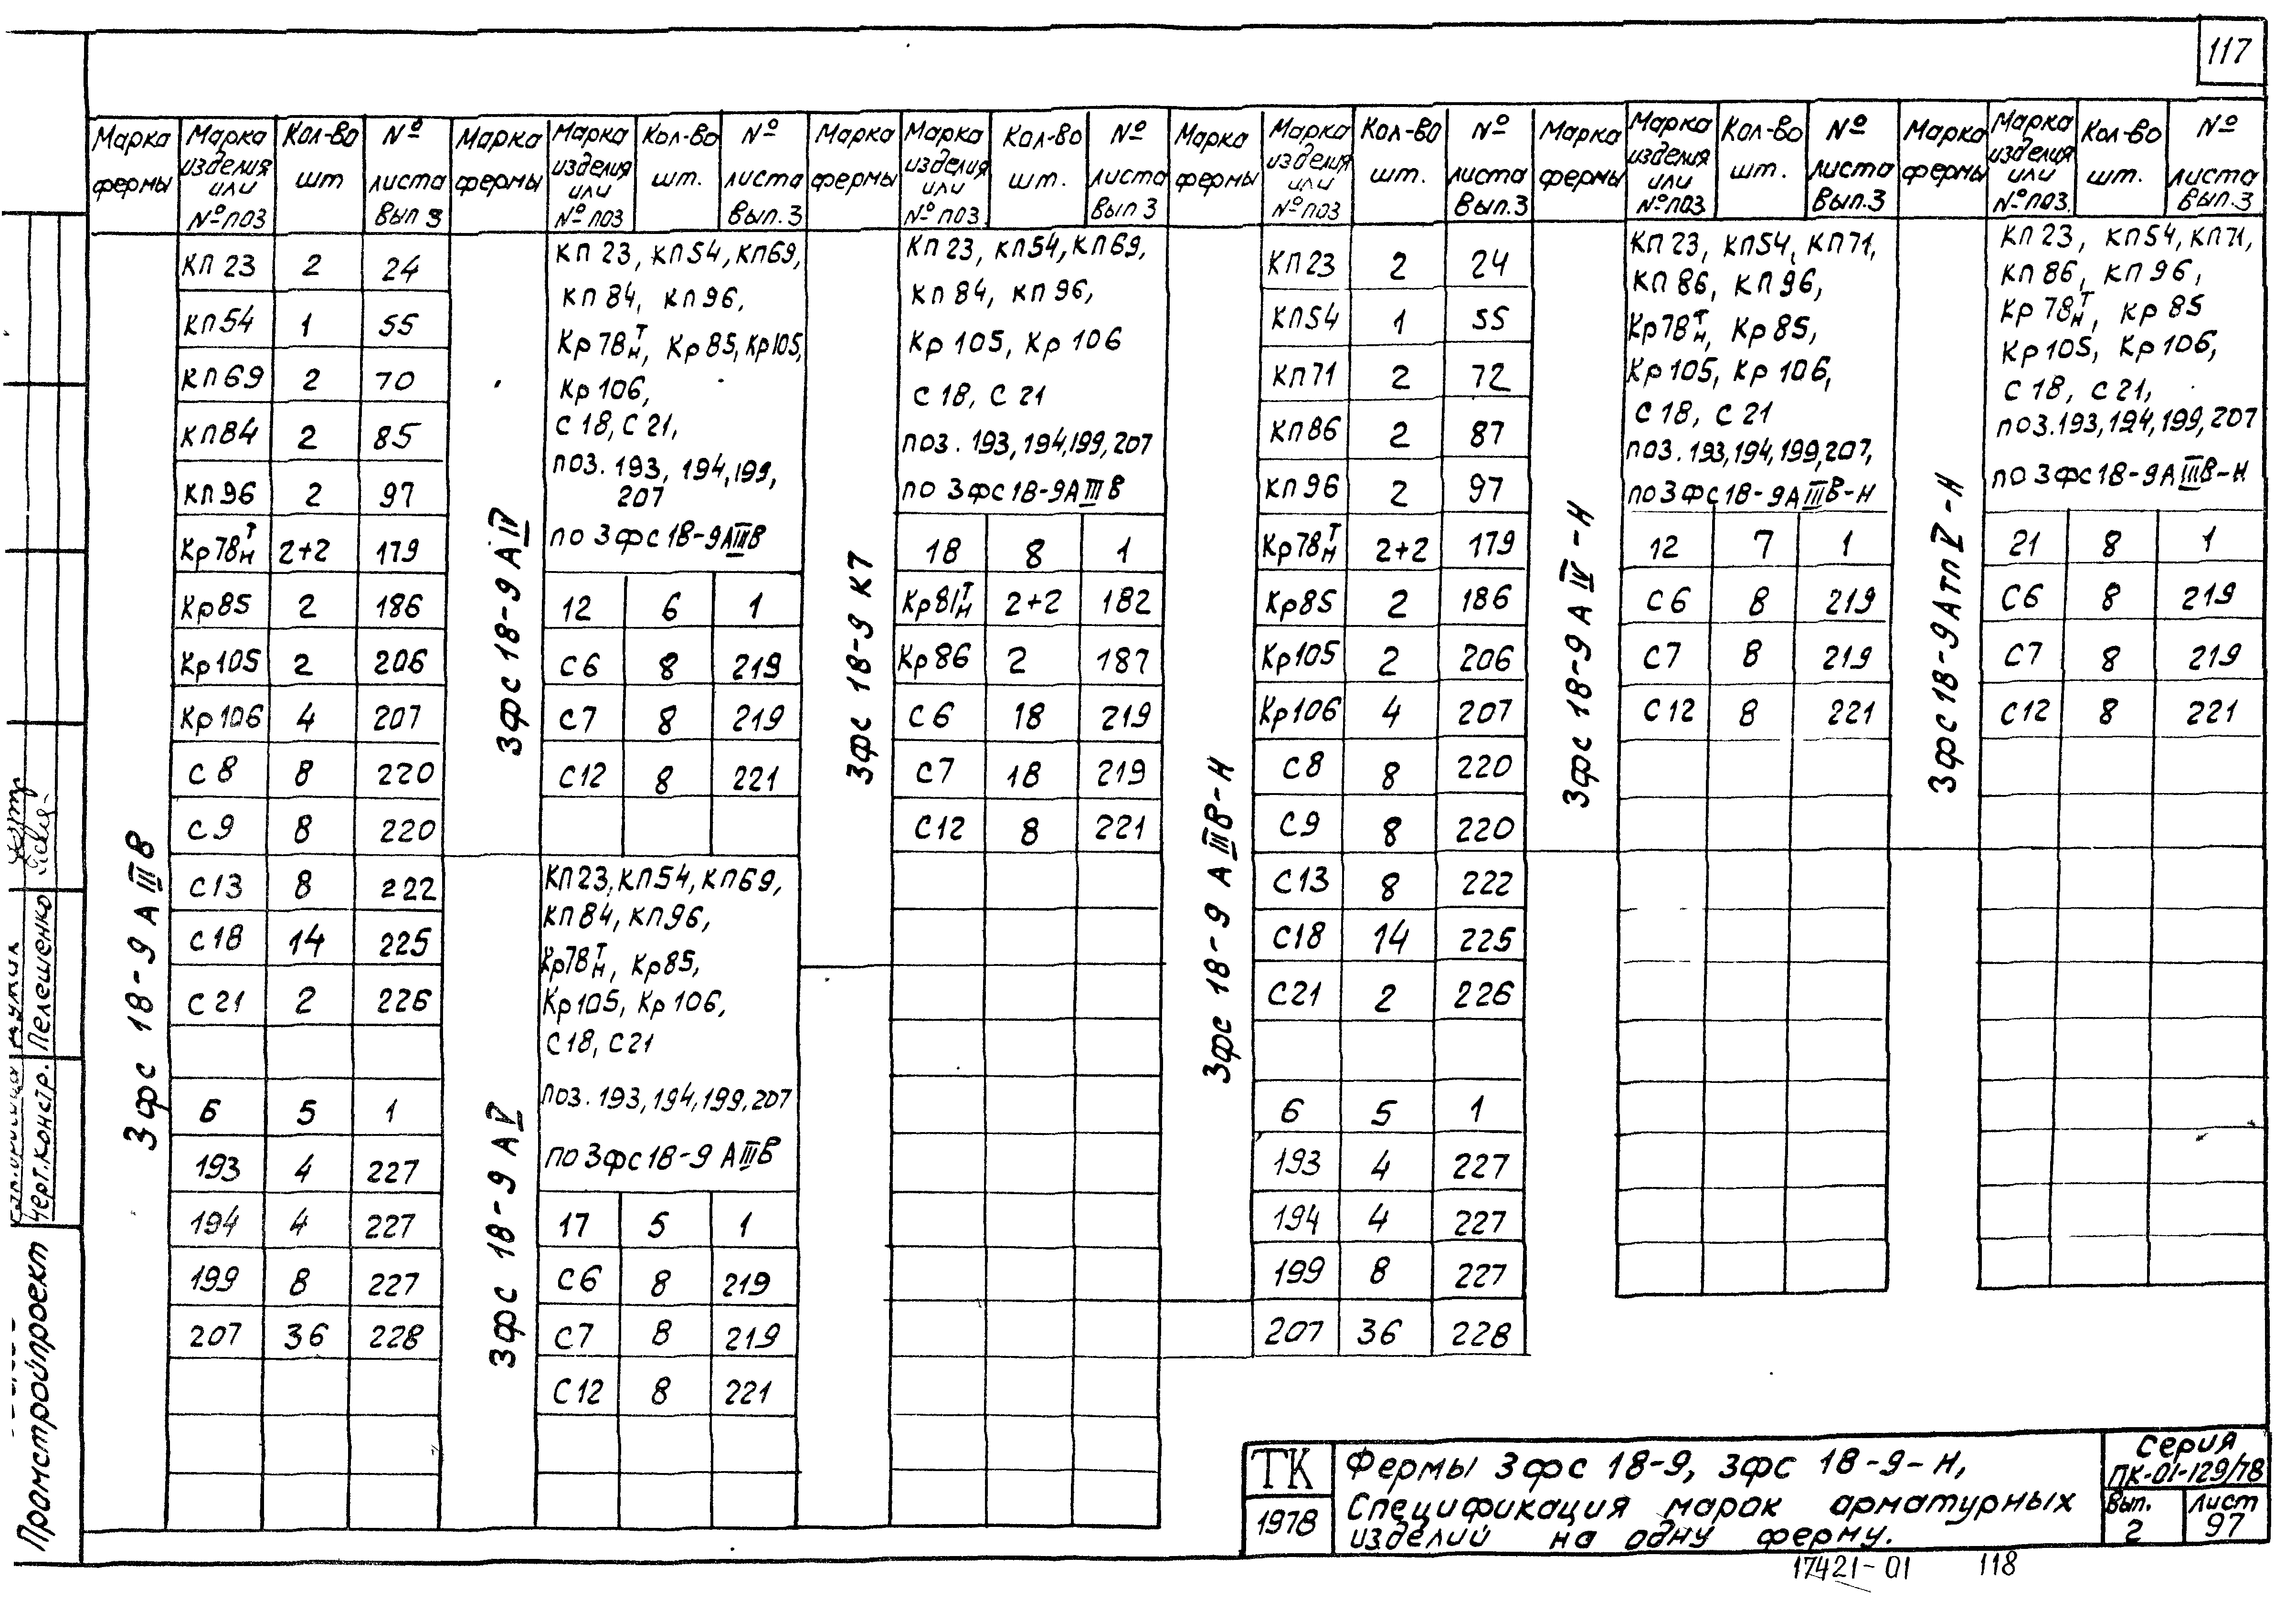 117
Марка фермы | Марка изделия или № поз | Кол-во шт | № листа Вып 3
3фс 18-9 АIIIВ
КП 23 2 24
КП 54 1 55
КП 69 2 70
КП 84 2 85
КП 96 2 97
Кр78Т/Н 2+2 179
Кр85 2 186
Кр105 2 206
Кр106 4 207
С 8 8 220
С 9 8 220
С 13 8 222
С 18 14 225
С 21 2 226
6 5 1
193 4 227
194 4 227
199 8 227
207 36 228
Марка фермы | Марка изделия или № поз | Кол-во шт. | № листа Вып. 3
3фс 18-9 АIV
КП 23, КП 54, КП 69,
КП 84, КП 96,
Кр 78Т/Н, Кр 85, Кр 105,
Кр 106,
С 18, С 21,
поз. 193, 194, 199,
207
по 3фс 18-9 АIIIВ
12 6 1
С6 8 219
С7 8 219
С12 8 221
3фс 18-9 АV
КП 23, КП 54, КП 69,
КП 84, КП 96,
Кр78Т/Н, Кр85,
Кр105, Кр 106,
С18, С21
поз. 193, 194, 199, 207
по 3фс 18-9 АIIIВ
17 5 1
С6 8 219
С7 8 219
С12 8 221
Марка фермы | Марка изделия или № поз. | Кол-во шт. | № листа Вып 3
3фс 18-9 К7
КП 23, КП 54, КП 69,
КП 84, КП 96,
Кр 105, Кр 106
С 18, С 21
поз. 193, 194, 199, 207
по 3фс 18-9 АIIIВ
18 8 1
Кр81Т/Н 2+2 182
Кр 86 2 187
С 6 18 219
С7 18 219
С12 8 221
Марка фермы | Марка изделия или № поз | Кол-во шт. | № листа Вып. 3
3фс 18-9 АIIIВ-Н
КП23 2 24
КП54 1 55
КП71 2 72
КП86 2 87
КП 96 2 97
Кр78Т/Н 2+2 179
Кр85 2 186
Кр105 2 206
Кр106 4 207
С8 8 220
С9 8 220
С13 8 222
С18 14 225
С21 2 226
6 5 1
193 4 227
194 4 227
199 8 227
207 36 228
Марка фермы | Марка изделия или № поз | Кол-во шт. | № листа Вып. 3
3фс 18-9 АIV-Н
КП 23, КП54, КП71,
КП 86, КП 96,
Кр78Т/Н, Кр 85,
Кр 105, Кр 106,
С 18, С 21
поз. 193, 194, 199, 207,
по 3фс 18-9 АIIIВ-Н
12 7 1
С6 8 219
С7 8 219
С12 8 221
Марка фермы | Марка изделия или № поз. | Кол-во шт. | № листа Вып. 3
3фс 18-9 АтпV-Н
КП 23, КП54, КП71,
КП 86, КП 96,
Кр 78Т/Н, Кр 85
Кр105, Кр 106,
С 18, С 21,
поз. 193, 194, 199, 207
по 3фс 18-9 АIIIВ-Н
21 8 1
С6 8 219
С7 8 219
С12 8 221
Черт. констр. Пелешенко
Промстройпроект
ТК
1978
Фермы 3фс 18-9, 3фс 18-9-Н,
Спецификация марок арматурных
изделий на одну ферму.
Серия
ПК-01-129/78
Вып. 2
Лист 97
17421-01 118